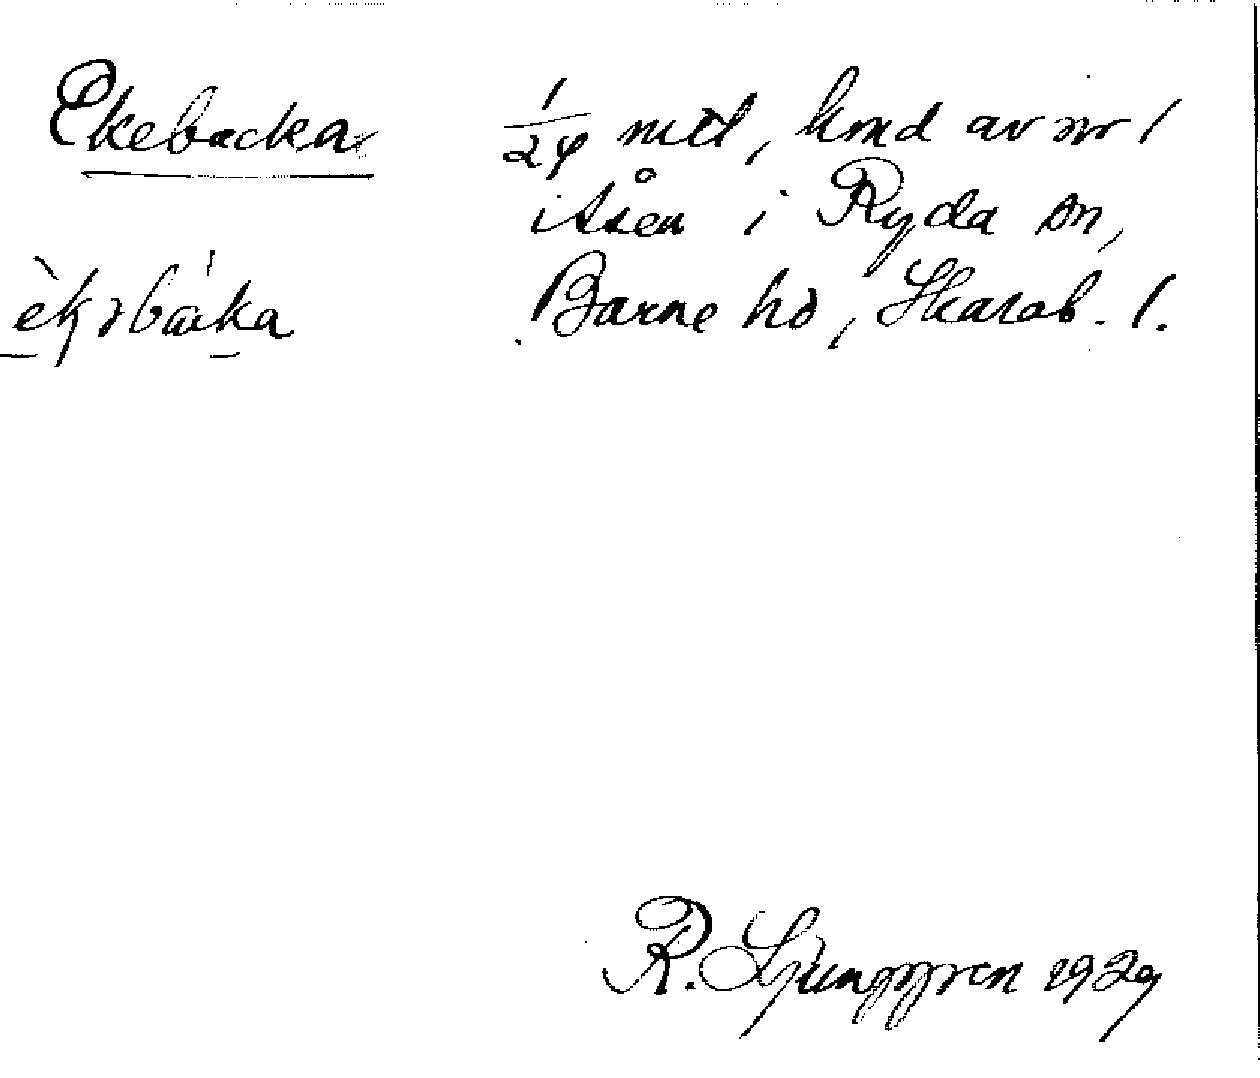 Ekebacka
1/24 mtl, hmd av nr 1
i Åsen i Ryda sn,
Barne hd, Skarab. l.
R. Ljunggren 1929